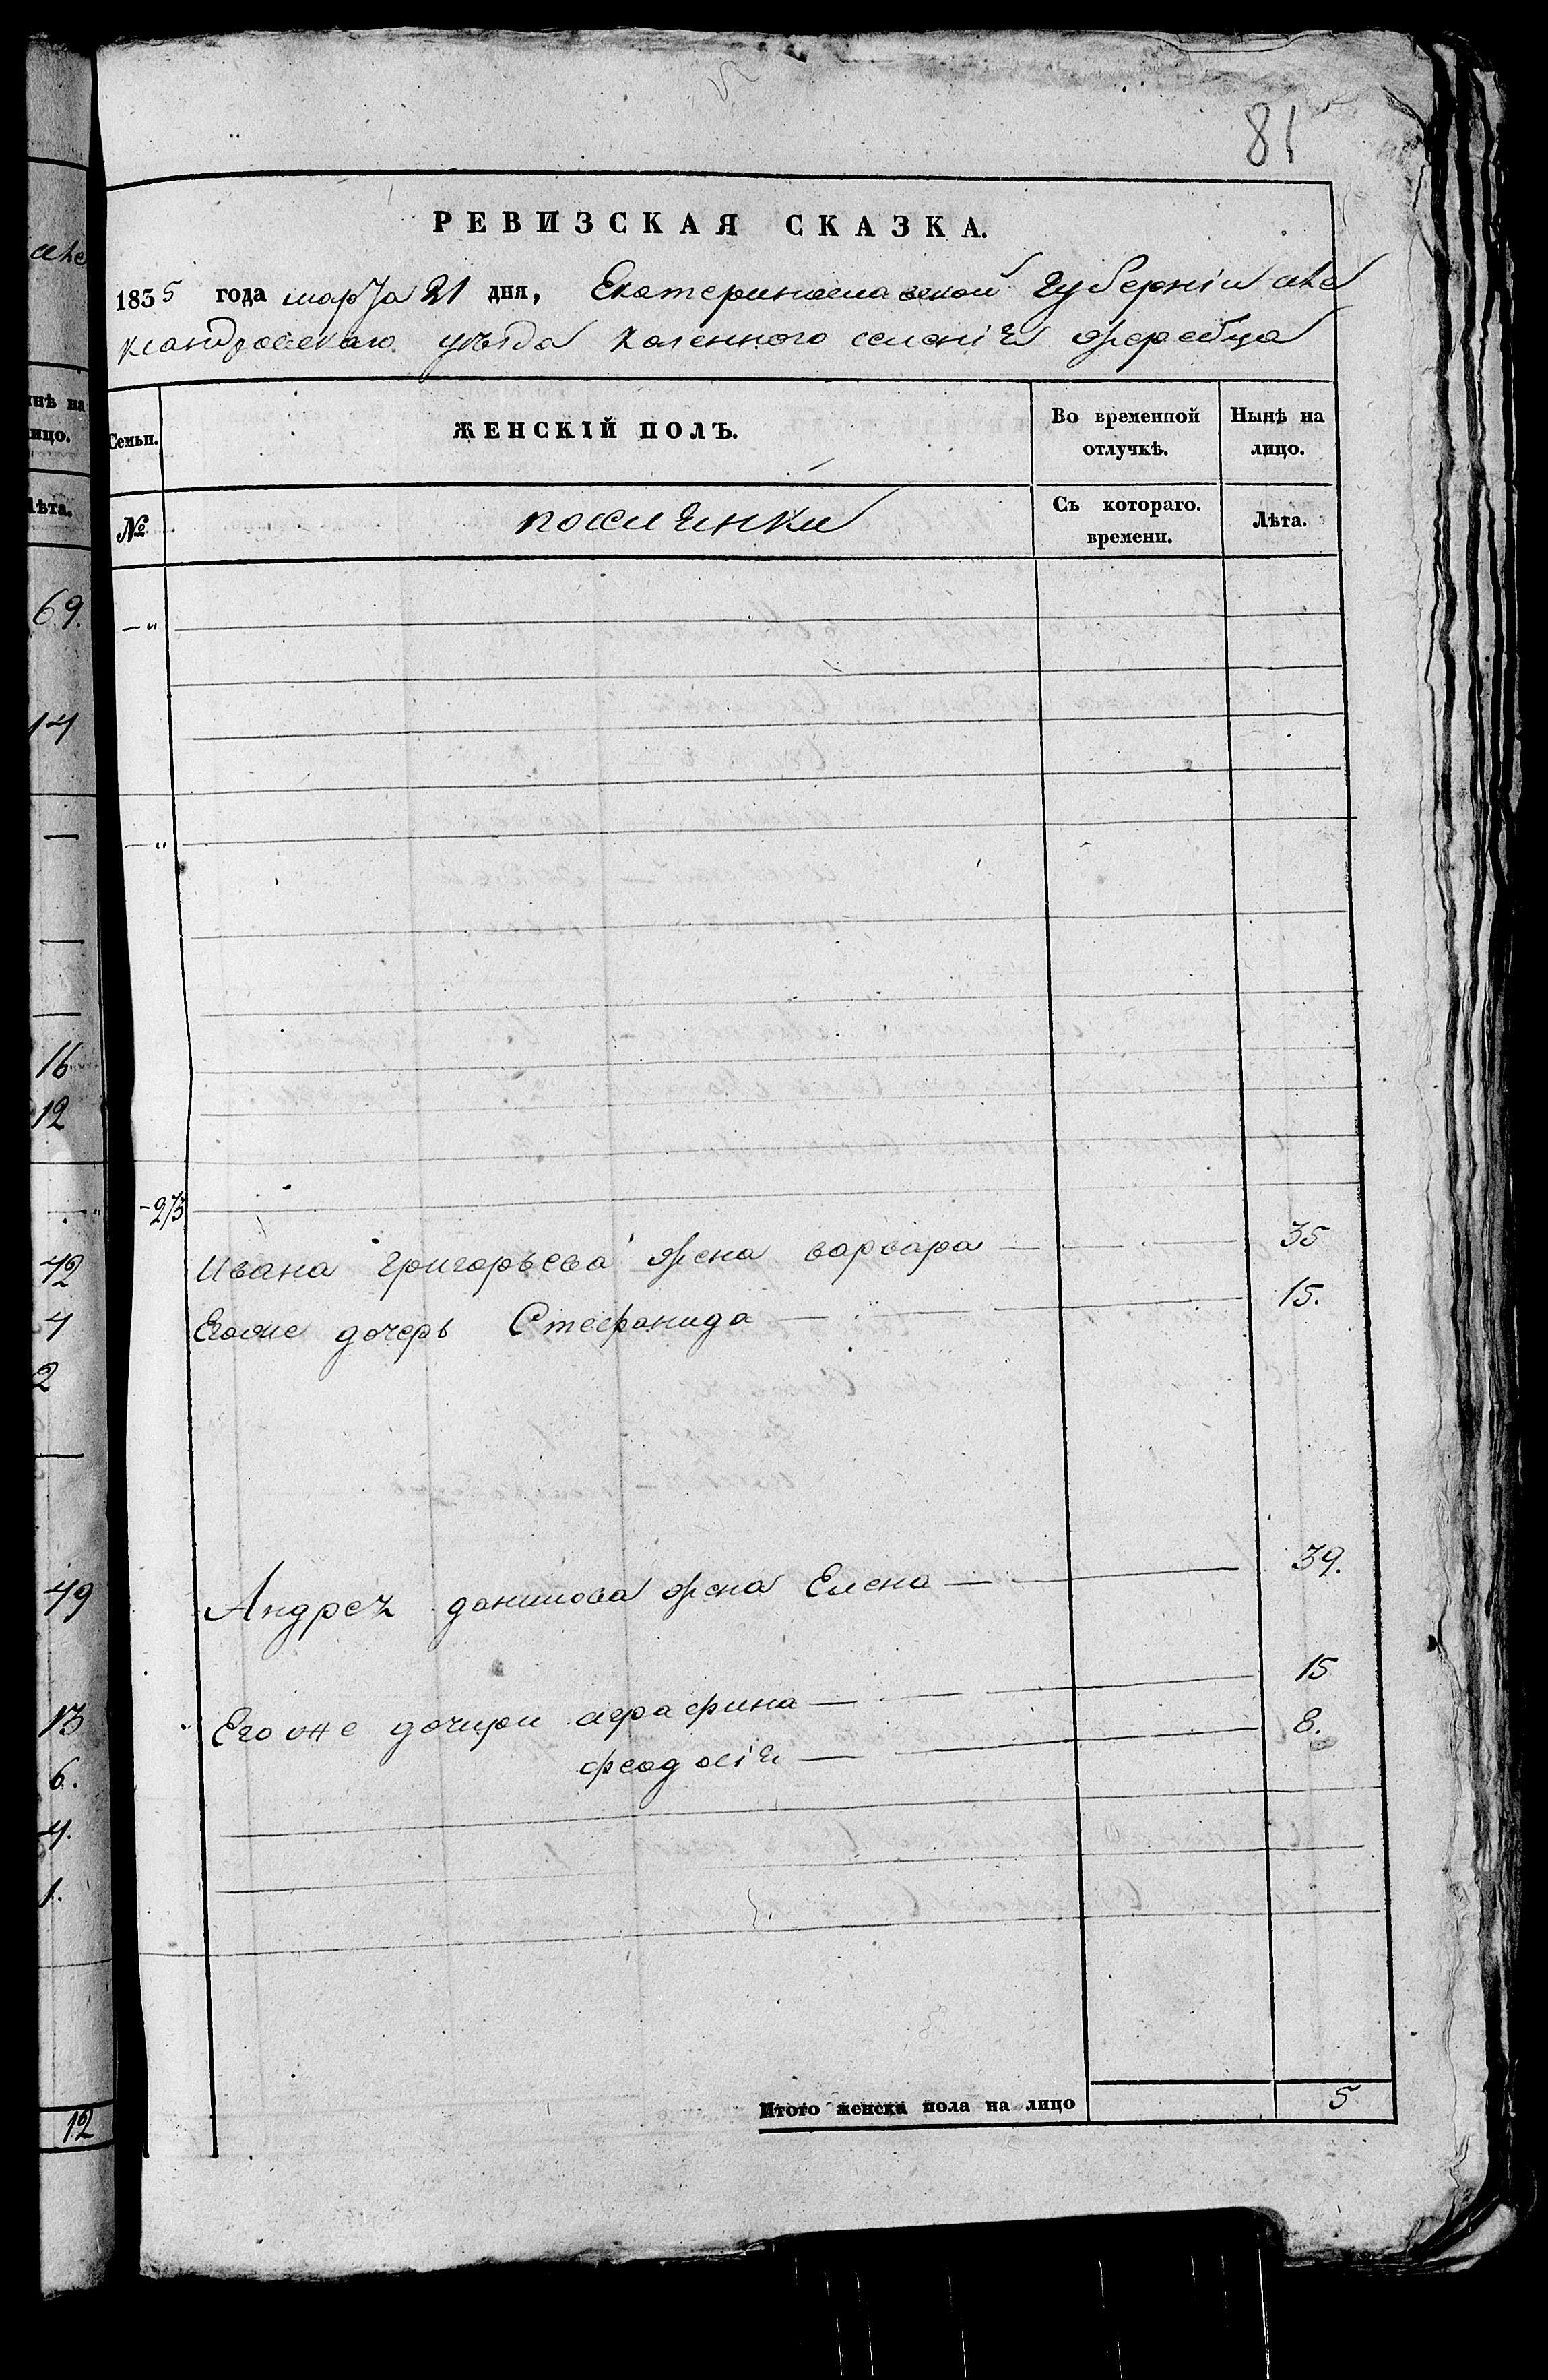 81
РЕВИЗСКАЯ СКАЗКА.
1835 года марта 21 дня, Екатеринославской Губерніи Але
ксандровскаго уѣзда казенного селенія жеребца
Семьи. ЖЕНСКІЙ ПОЛЪ. Во временной отлучкѣ. Нынѣ на лицо.
№ поселянки Съ котораго. времени. Лѣта.
—"
—"
-273
Ивана Григорьева жена варвара — — — 35
Егоже дочерь Стефанида — — — 15.
Андрея данилова жена Елена — — 39.
Егоже дочери аграфина — — — 15
феодосія — — 8.
Итого женска пола на лицо 5
але
нѣ на
ицо.
Лѣта.
69.
14
—
—
—
16
12
42
4
2
—
49
13
6.
4.
1.
12